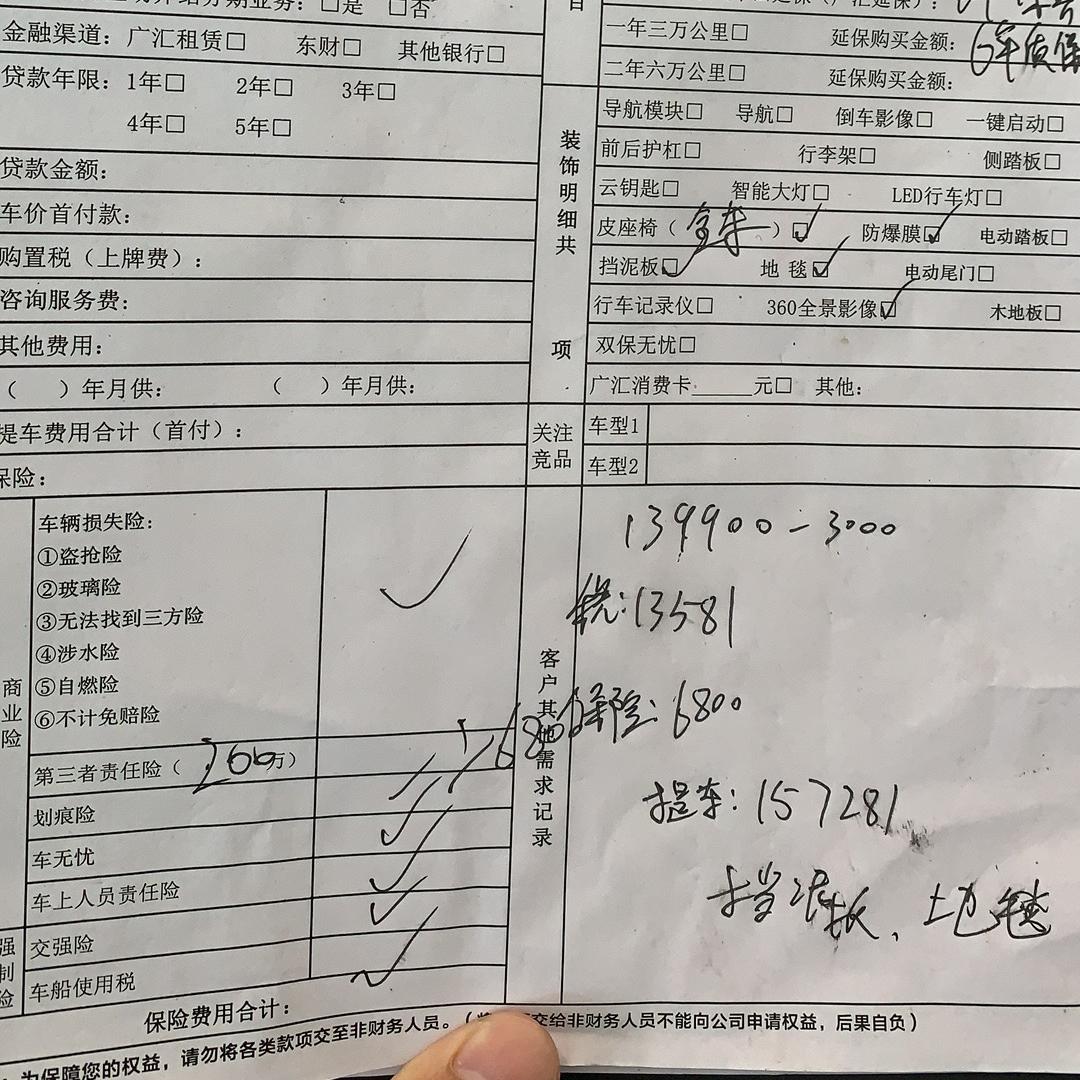 业务：□是 □否
金融渠道：广汇租赁□ 东财□ 其他银行□
贷款年限：1年□ 2年□ 3年□
4年□ 5年□
贷款金额：
车价首付款：
购置税（上牌费）：
咨询服务费：
其他费用：
（ ）年月供： （ ）年月供：
提车费用合计（首付）：
保险：
商业险
车辆损失险：
①盗抢险
②玻璃险
③无法找到三方险
④涉水险
⑤自燃险
⑥不计免赔险
第三者责任险（200万）
划痕险
车无忧
车上人员责任险
强制险
交强险
车船使用税
保险费用合计：
一年三万公里□ 延保购买金额：6年质保
二年六万公里□ 延保购买金额：
装饰明细共 项
导航模块□ 导航□ 倒车影像□ 一键启动□
前后护杠□ 行李架□ 侧踏板□
云钥匙□ 智能大灯□ LED行车灯□
皮座椅（全车）☑ 防爆膜☑ 电动踏板□
挡泥板☑ 地毯☑ 电动尾门□
行车记录仪□ 360全景影像☑ 木地板□
双保无忧□
广汇消费卡______元□ 其他：
关注竞品
车型1
车型2
客户其他需求记录
139900-3000
税：13581
6800
保险：6800
提车：157281
挡泥板、地毯
为保障您的权益，请勿将各类款项交至非财务人员。（ 交给非财务人员不能向公司申请权益，后果自负）